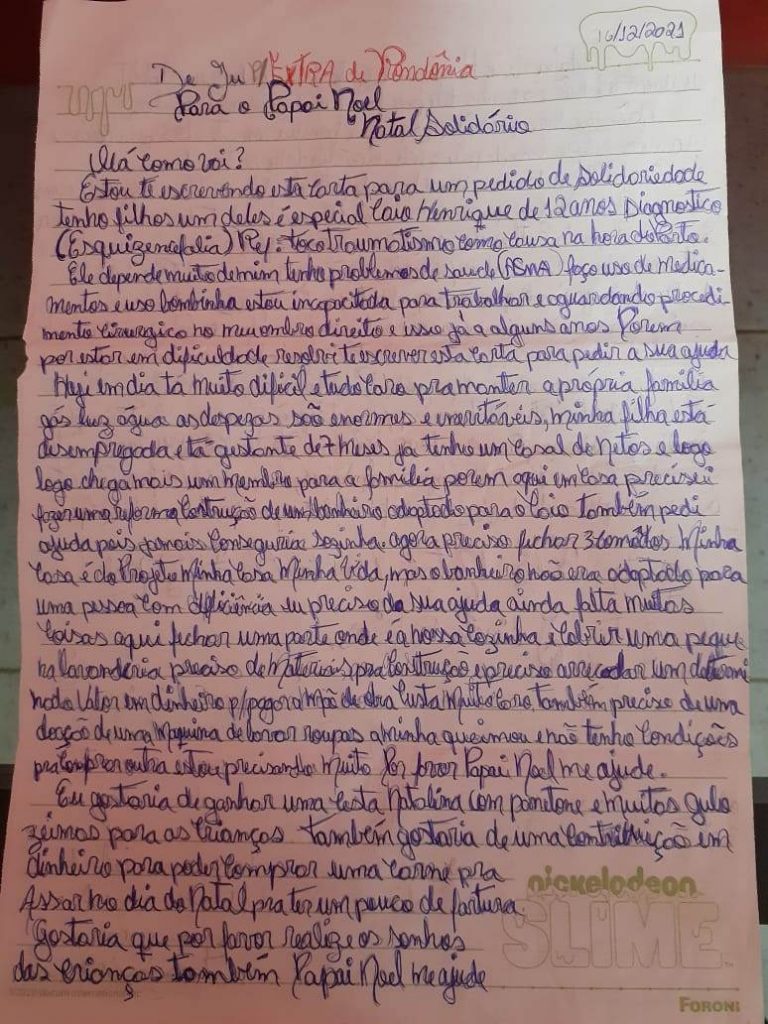 16/12/2021
De Ju P/EXTRA de Rondônia
Para o Papai Noel
Natal Solidário
Olá como vai?
Estou te escrevendo esta carta para um pedido de Solidariedade
tenho filhos um deles é especial Caio Henrique de 12 anos Diagnostico
(Esquizencefalia) Ref: tocotraumatismo como causa na hora do Parto.
Ele depende muito de mim tenho problemas de saude (ASMA) faço uso de medica-
mentos e uso bombinha estou incapacitada para trabalhar e aguardando procedi-
mento cirurgico no meu ombro direito e isso já a alguns anos Porem
por estar em dificuldade resolvi te escrever esta carta para pedir a sua ajuda
Hoji em dia ta muito dificil e tudo caro pra manter a própria família
gás luz água as despezas são enormes e inevitáveis, minha filha está
desempregada e tá gestante de 7 meses ja tenho um casal de netos e logo
logo chega mais um membro para a família porem aqui em casa precisei
fazer uma reforma contrução de um banheiro adaptado para o Caio também pedi
ajuda pois jamais conseguiria sozinha. agora preciso fichar 3 comodos Minha
casa é do Projeto Minha Casa Minha Vida, mas o banheiro não era adaptado para
uma pessoa com deficiência eu preciso da sua ajuda ainda falta muitas
coisas aqui fichar uma parte onde é a nossa cozinha e cobrir uma peque
na lavanderia preciso de Materiais pra construção e preciso arrecadar um determi
nado valor em dinheiro p/ pagar a mão de obra custa Muito caro, também preciso de uma
doação de uma Maquina de lavar roupas a minha queimou e não tenho condições
pra comprar outra estou precisando Muito Por favor Papai Noel me ajude.
Eu gostaria de ganhar uma cesta Natalina com panetone e muitas gulo
zeimas para as crianças também gostaria de uma contribuição em
dinheiro para poder comprar uma carne pra
Assar no dia do Natal pra ter um pouco de fartura
Gostaria que por favor realize os sonhos
das crianças também Papai Noel me ajude
nickelodeon
SLIME
FORONI